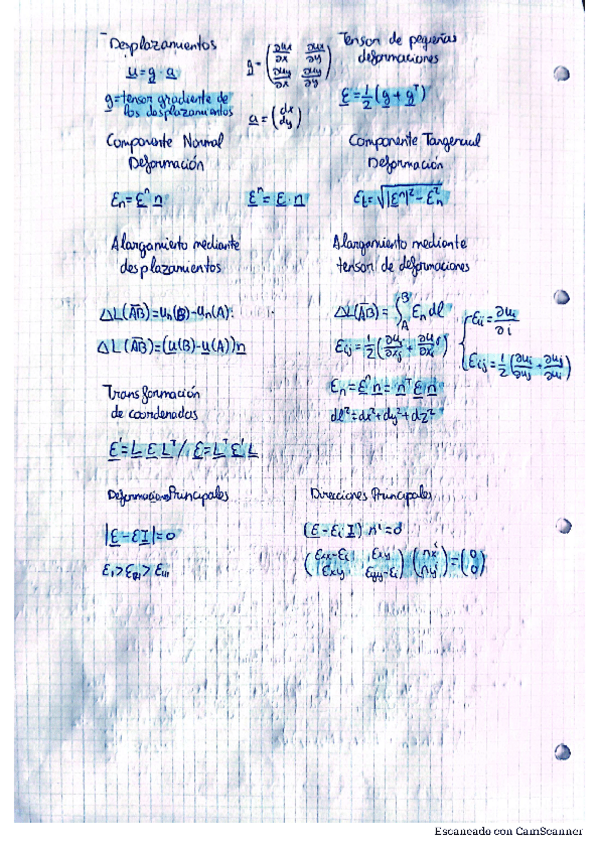 Desplazamientos
u = g · a
g = tensor gradiente de
los desplazamientos
g = (∂ux/∂x ∂ux/∂y
∂uy/∂x ∂uy/∂y)
a = (dx
dy)
Tensor de pequeñas
deformaciones
ε = 1/2 (g + gᵀ)
Componente Normal
Deformación
εn = εⁿ n
εⁿ = ε · n
Componente Tangencial
Deformación
εt = √|εⁿ|² - εn²
Alargamiento mediante
desplazamientos
ΔL(AB) = un(B) - un(A)
ΔL(AB) = (u(B) - u(A)) n
Alargamiento mediante
tensor de deformaciones
ΔL(AB) = ∫_A^B εn dl
εij = 1/2 (∂ui/∂xj + ∂uj/∂xi)
εn = εⁿ n = nᵀ ε n
dl² = dx² + dy² + dz²
εii = ∂ui/∂i
Transformación
de coordenadas
ε' = L ε Lᵀ / ε = Lᵀ ε' L
Deformaciones Principales
|ε - εI| = 0
εI > εII > εIII
Direcciones Principales
(ε - εi I) nⁱ = 0
(εxx - εi εxy
εxy εyy - εi) (nxⁱ
nyⁱ) = (0
0)
Escaneado con CamScanner